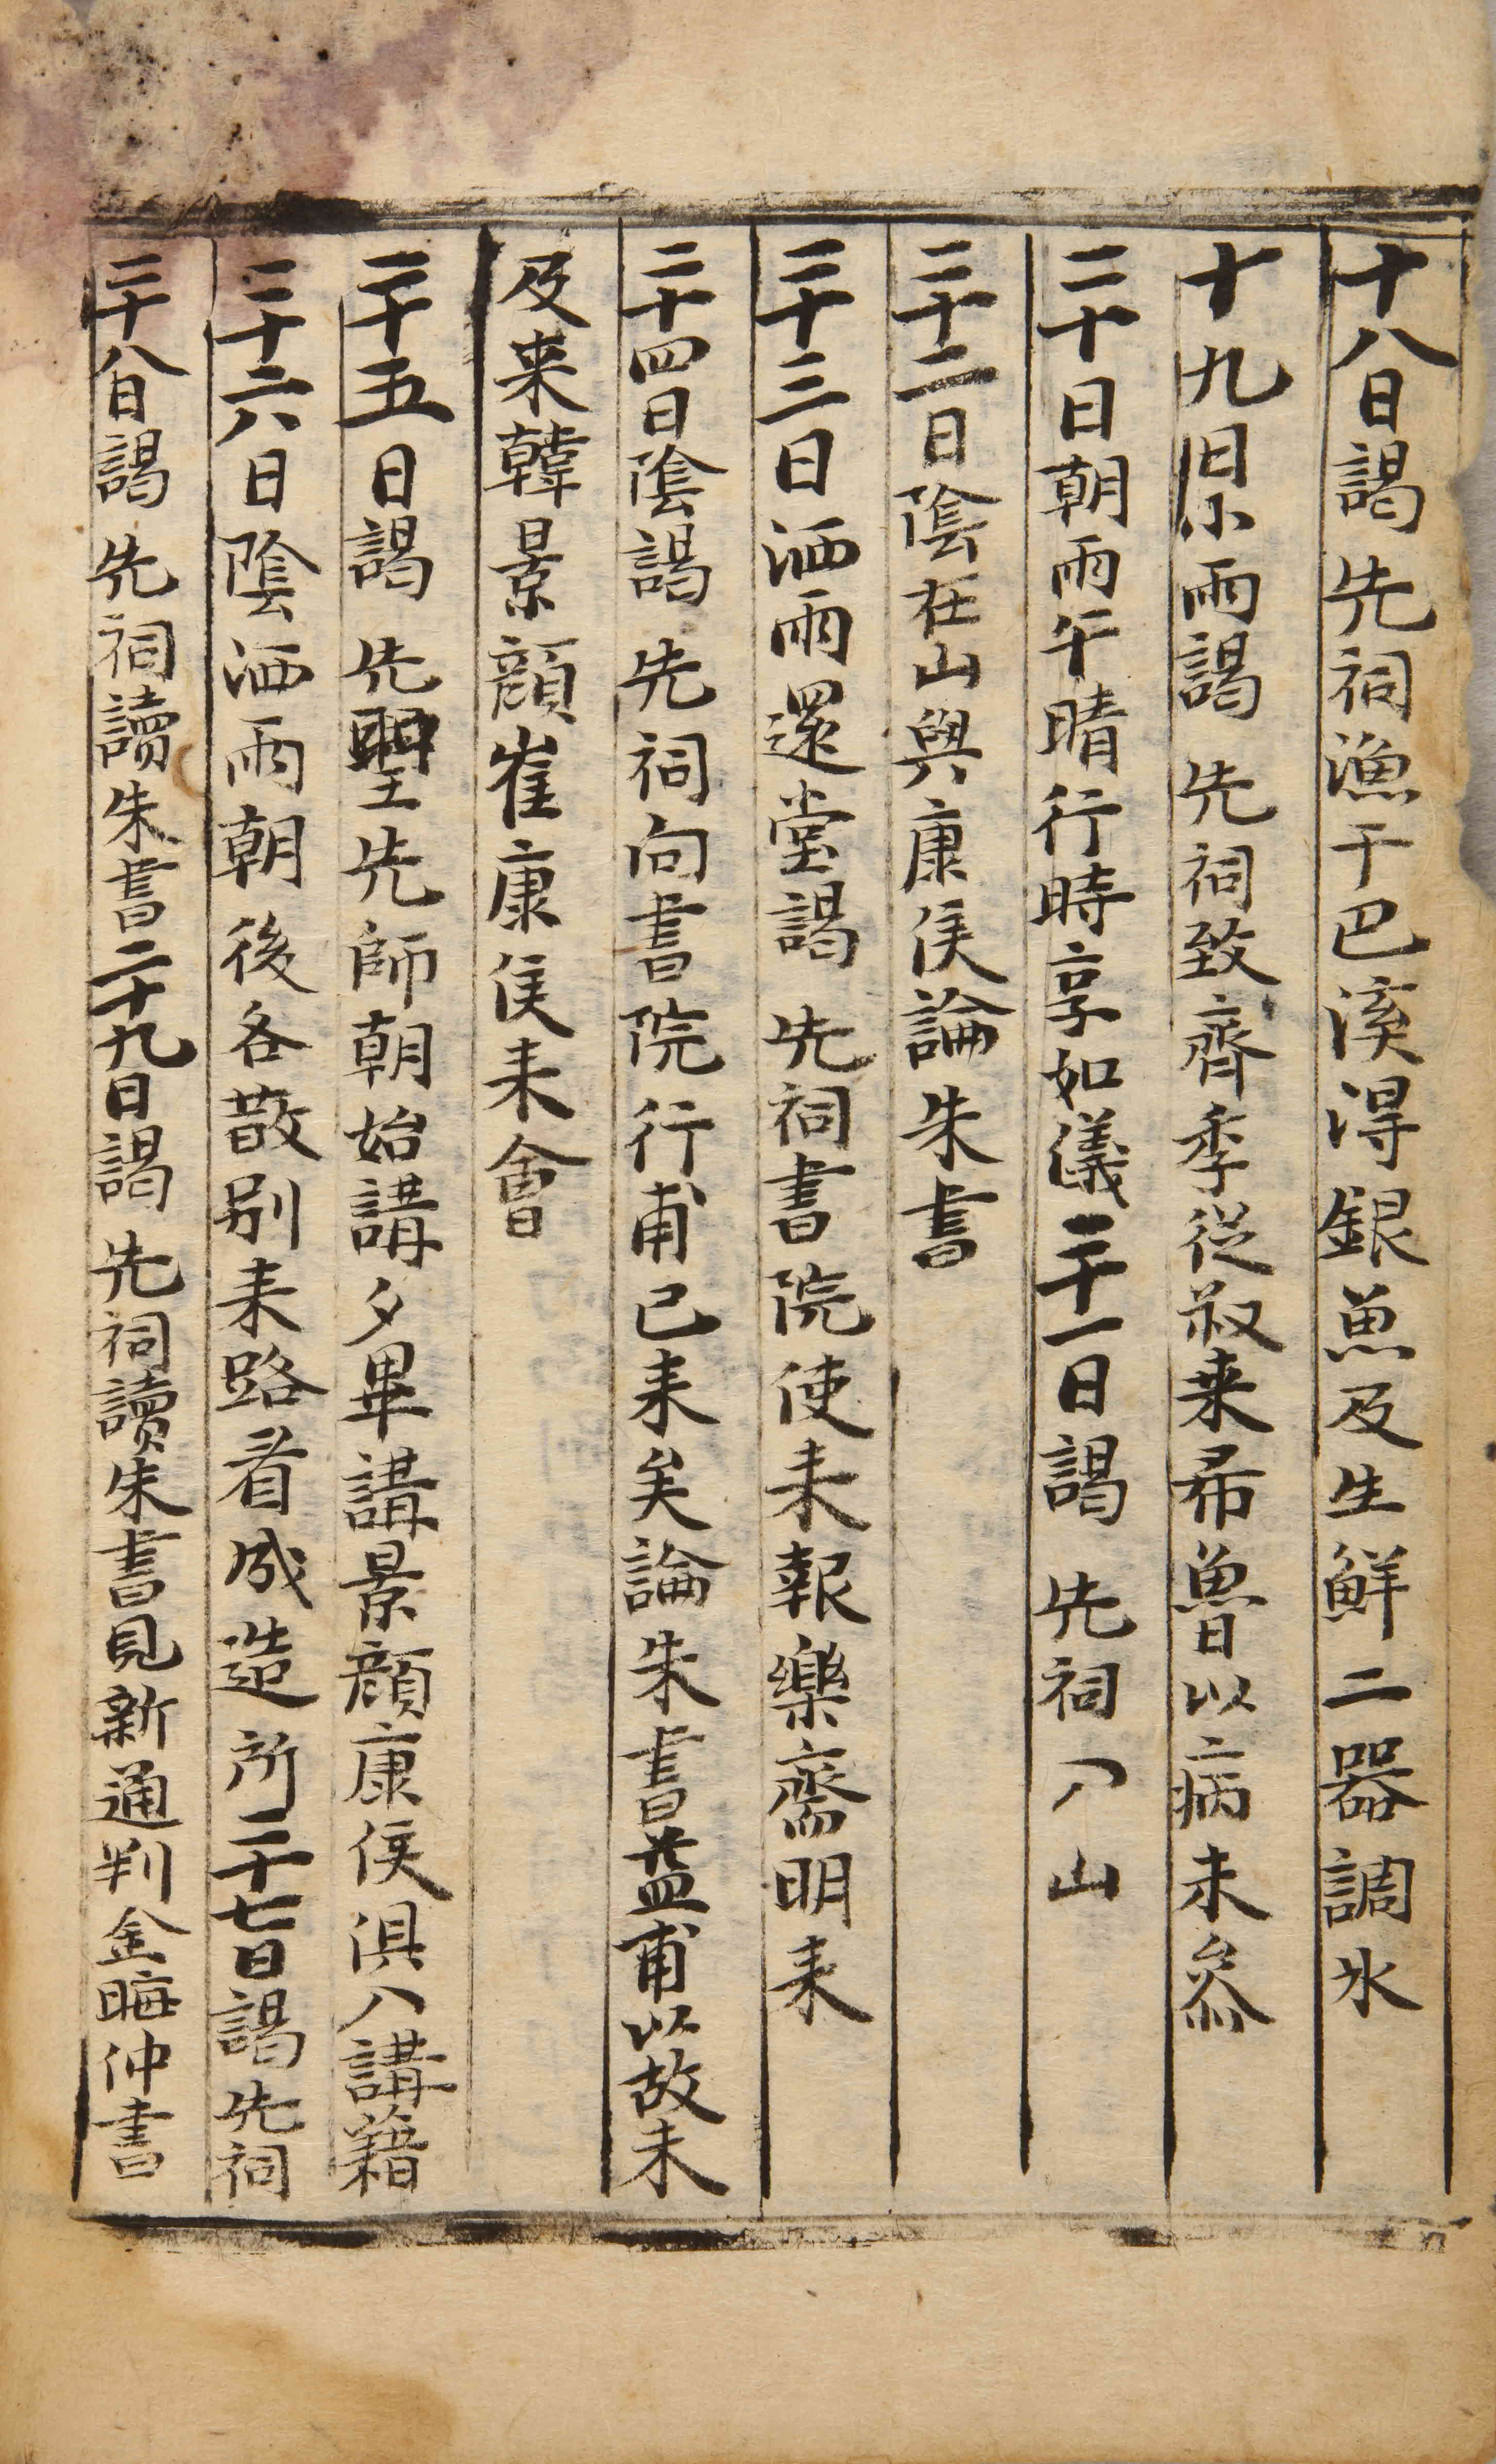 十八日謁先祠漁于巴溪得銀魚及生鮮二器調水
十九日小雨謁 先祠致齊季從叔来希魯以病未叅
二十日朝雨午晴行時享如儀二十一日謁 先祠入山
二十二日陰在山與康侯論朱書
二十三日洒雨還堂謁 先祠書院使来報樂齋明来
二十四日陰謁 先祠向書院行甫已来矣論朱書益甫以故未
及来韓景顔崔康侯来會
二十五日謁 先聖先師朝始講夕畢講景顔康侯俱入講籍
二十六日陰洒雨朝後各散别来路看成造所二十七日謁先祠
二十八日謁 先祠讀朱書二十九日謁 先祠讀朱書見新通判金晦仲書